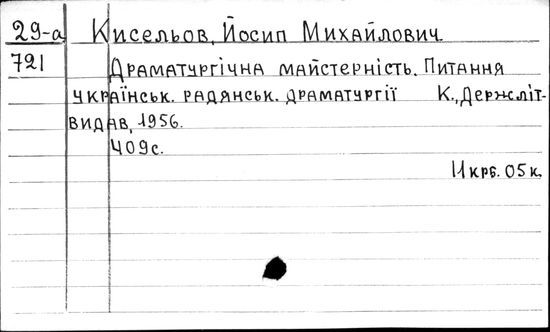 29-а Кисельов, Йосип Михайлович.
721 Драматургічна майстерність. Питання
українськ. радянськ. драматургії К., Держліт-
видав, 1956.
409с.
11 крб. 05 к.